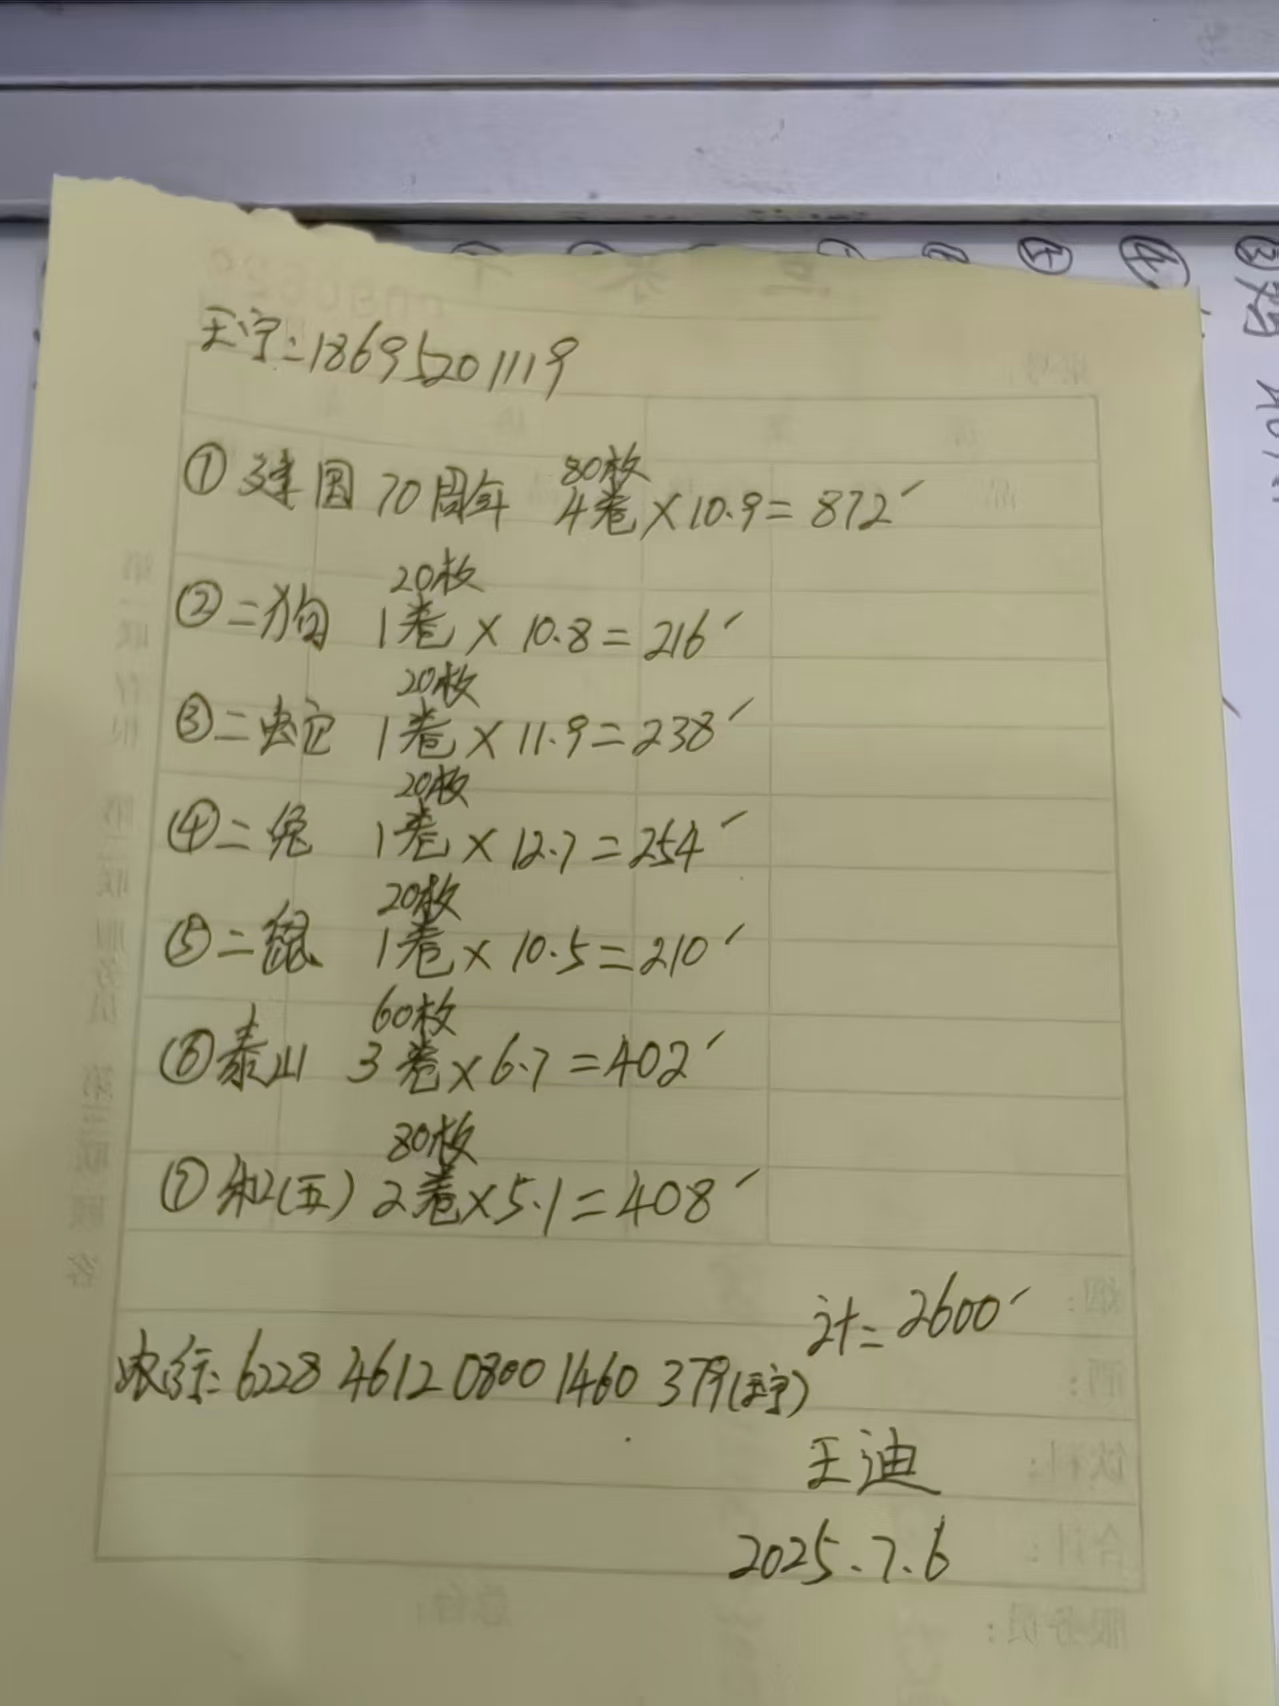 王宁:18695201119
80枚
①建国70周年 4卷×10.9=872
20枚
②二狗 1卷×10.8=216
20枚
③二蛇 1卷×11.9=238
20枚
④二兔 1卷×12.7=254
20枚
⑤二鼠 1卷×10.5=210
60枚
⑥泰山 3卷×6.7=402
80枚
⑦和(五) 2卷×5.1=408
计=2600
农行:6228 4612 0800 1460 379(王宁)
王迪
2025.7.6